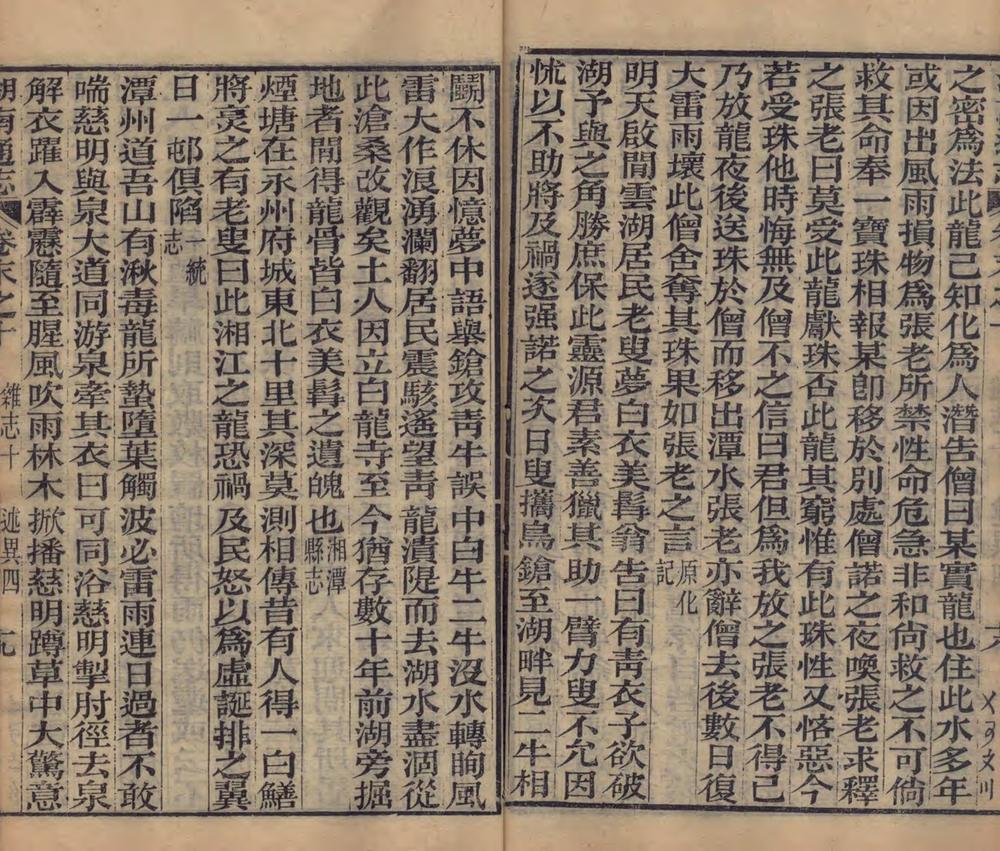 之密爲法此龍已知化爲人潛告僧曰某實龍也住此水多年
或因出風雨損物爲張老所禁性命危急非和尙救之不可倘
救其命奉一寶珠相報某卽移於別處僧諾之夜喚張老求釋
之張老曰莫受此龍獻珠否此龍甚窮惟有此珠性又悋惡今
若受珠他時悔無及僧不之信曰君但爲我放之張老不得已
乃放龍夜後送珠於僧而移出潭水張老亦辭僧去後數日復
大雷雨壞此僧舍奪其珠果如張老之言原化記
明天啟閒雲湖居民老叟夢白衣美髯翁告曰有靑衣子欲破
湖予與之角勝庶保此靈源君素善獵其助一臂力叟不允因
怵以不助將及禍遂强諾之次日叟攜鳥鎗至湖畔見二牛相
鬬不休因憶夢中語舉鎗攻靑牛誤中白牛二牛沒水轉眴風
雷大作浪湧瀾翻居民震駭遙望靑龍潰隄而去湖水盡涸從
此滄桑改觀矣土人因立白龍寺至今猶存數十年前湖旁掘
地者閒得龍骨皆白衣美髯之遺魄也湘潭縣志
煙塘在永州府城東北十里其深莫測相傳昔有人得一白鱔
將烹之有老叟曰此湘江之龍恐禍及民怒以爲虛誕排之翼
日一邨俱陷一統志
潭州道吾山有湫毒龍所蟄墮葉觸波必雷雨連日過者不敢
喘慈明與泉大道同游泉牽其衣曰可同浴慈明掣肘徑去泉
解衣躍入霹靂隨至腥風吹雨林木掀播慈明蹲草中大驚意
湖南通志 卷末之十 雜志十 述異四 九